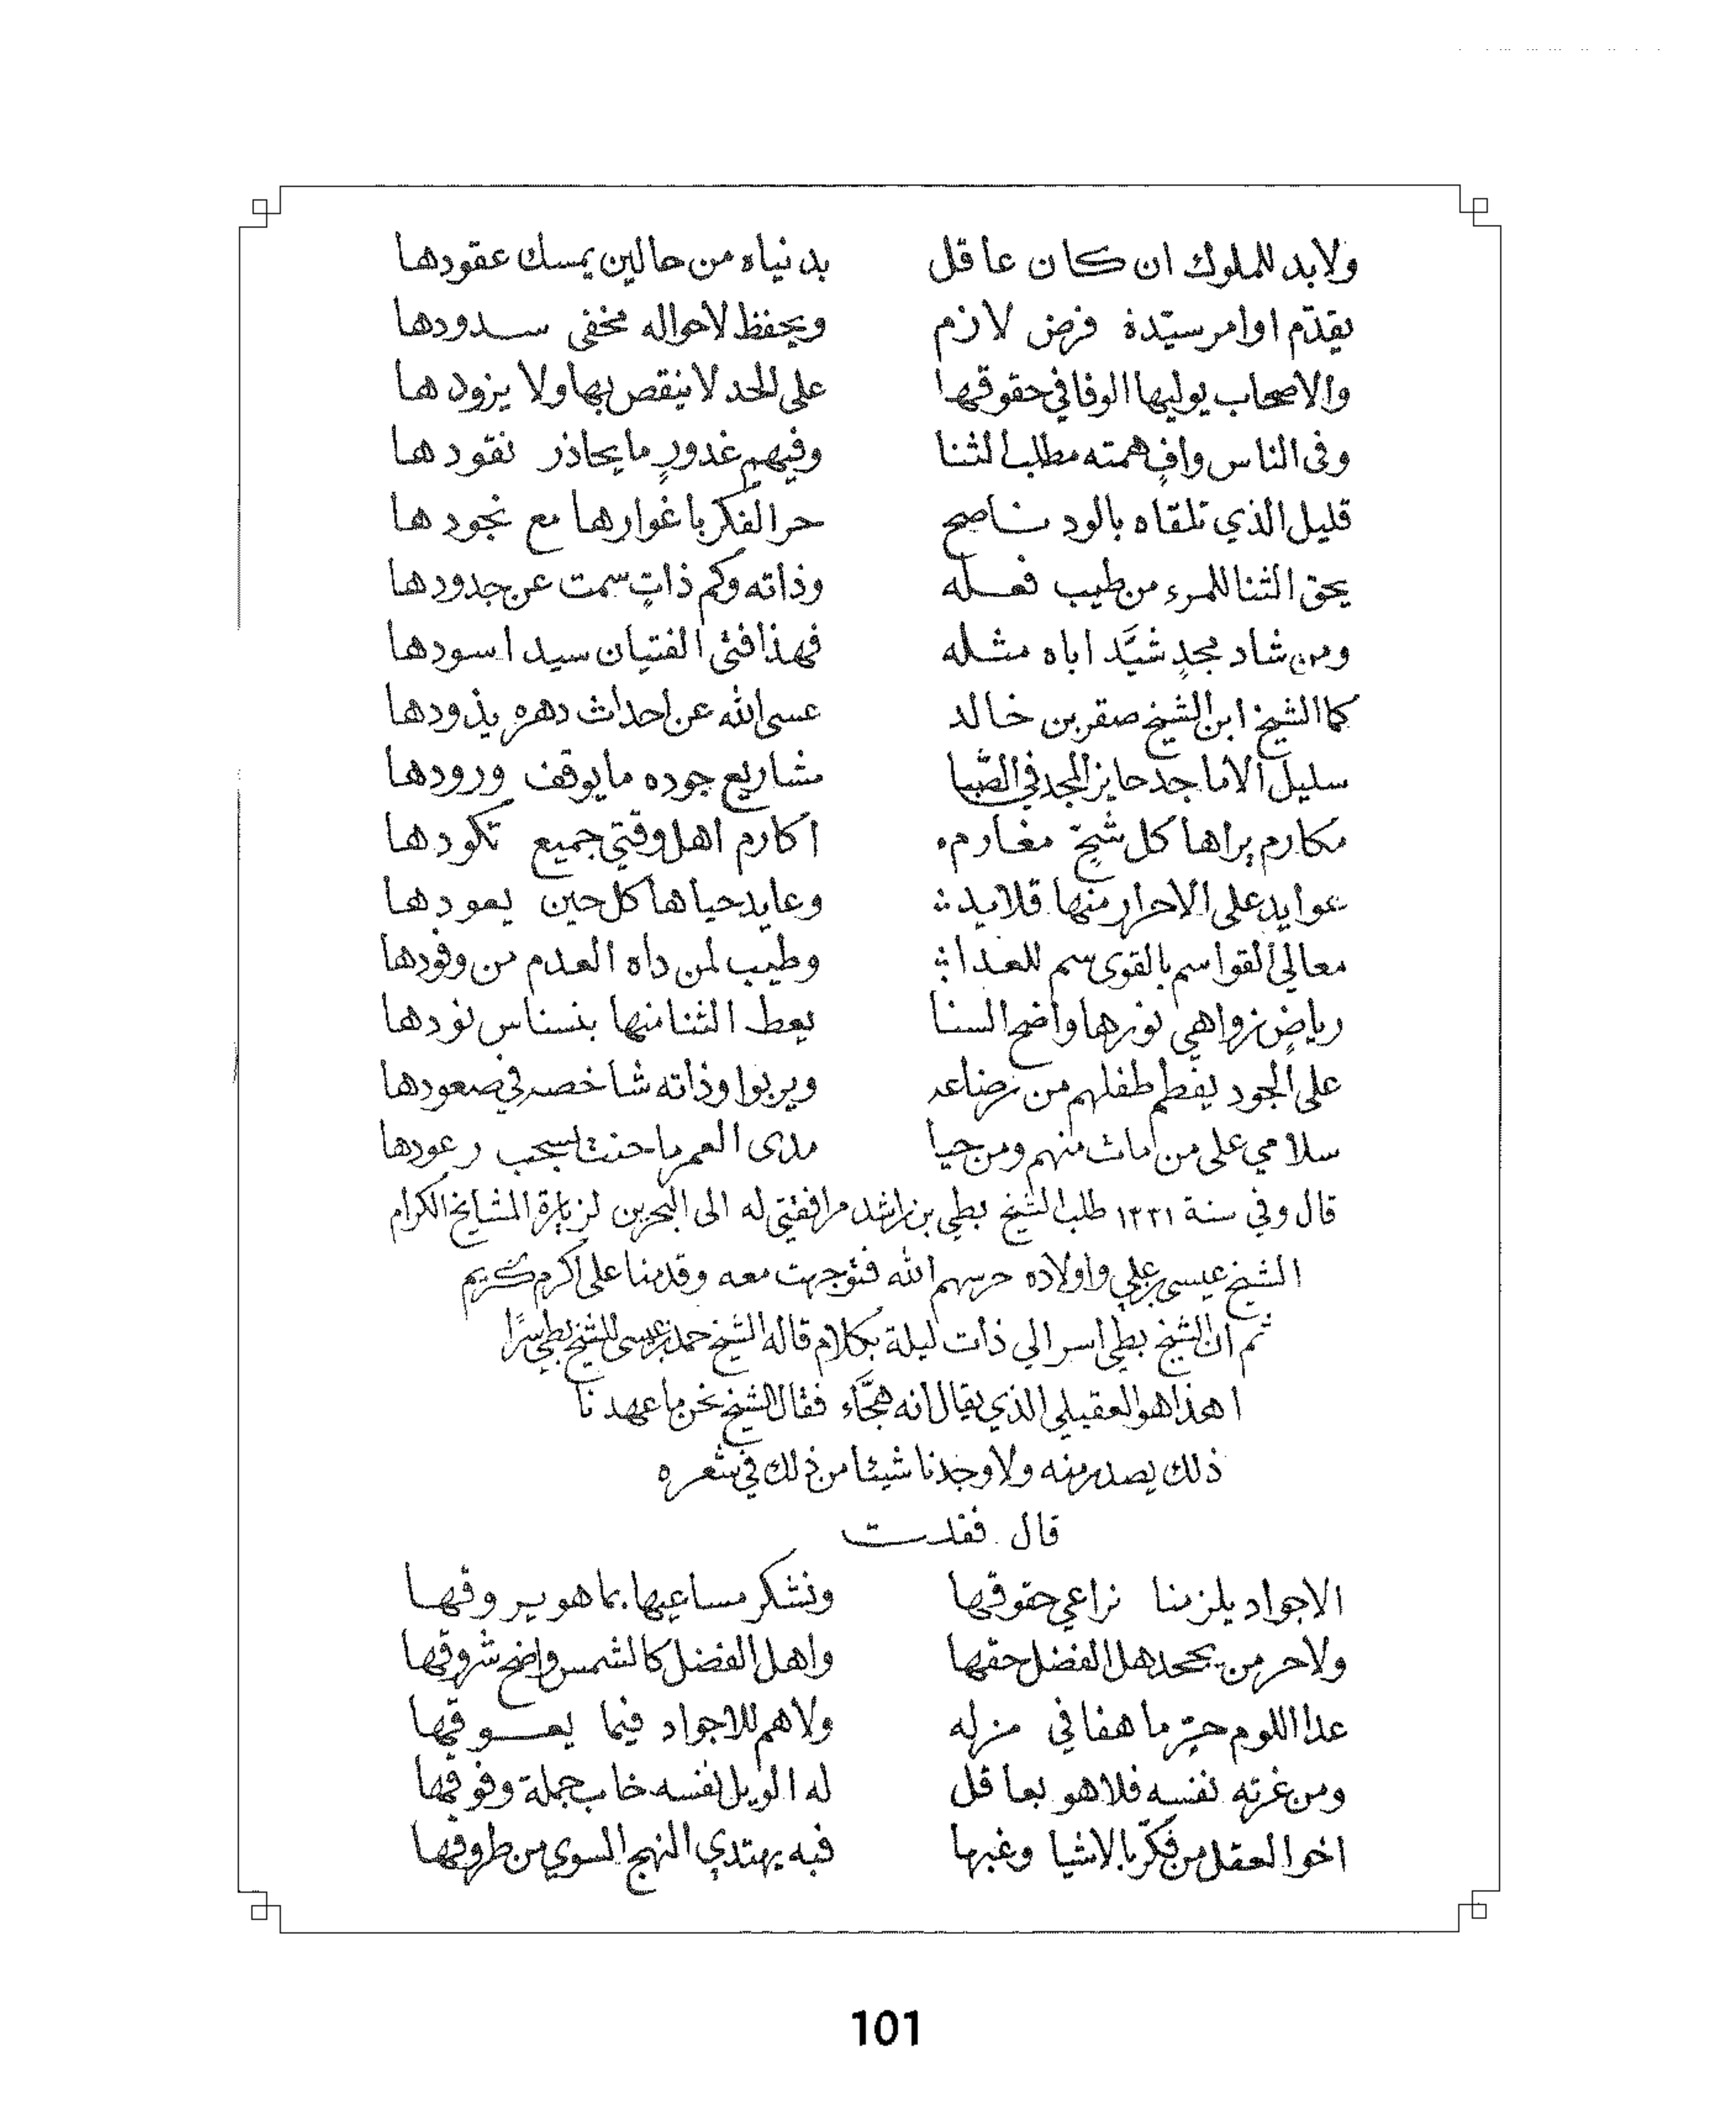 ولابد للملوك ان كان عاقل بدنياه من حالين يمسك عقودها
يقدّم اوامر سيّدة فرض لازم ويحفظ لاحواله مخفي سدودها
والاصحاب يوليها الوفا في حقوقها على الحد لا ينقص بها ولا يزودها
وفى الناس وافٍ همته مطلب الثنا وفيهم غدورٍ ما يحاذر نقودها
قليل الذي تلقاه بالود ناصح حر الفكر باغوارها مع نجودها
يحق الثنا للمرء من طيب فعله وذاته وكم ذاتٍ سمت عن جدودها
ومن شاد مجدٍ شيَّد اباه مثله فهذا فتى الفتيان سيد اسودها
كما الشيخ ابن الشيخ صقر بن خالد عسى الله عن احداث دهره يذودها
سليل الأماجد حايز المجد في الصّبا مشاريع جوده ما يوقف ورودها
مكارم يراها كل شحّ مغارمه اكارم اهل وقتي جميع تكودها
عوايد على الاحرار منها قلايد وعايد حياها كل حين يعودها
معالي القواسم بالقوى سم للعدا وطيب لمن داه العدم من وفودها
رياضٍ زواهي نورها واضح السنا يعط الثنا منها بنسناس نودها
على الجود يفطم طفلهم من رضاعه ويربوا وذاته شاخصه في صعودها
سلامي على من مات منهم ومن حيا مدى العمر ما حنت بسحب رعودها
قال وفي سنة ١٣٣١ طلب الشيخ بطي بن راشد مرافقتي له الى البحرين لزيارة المشايخ الكرام
الشيخ عيسى بن علي واولاده حرسهم الله فتوجهت معه وقدمنا على اكرم كريم
ثم ان الشيخ بطي اسر الي ذات ليلة بكلام قاله الشيخ حمد بن عيسى للشيخ بطي سرًا
اهذا هو العقيلي الذي يقال انه هجَّاء فقال الشيخ نحن ما عهدنا
ذلك يصدر منه ولا وجدنا شيئا من ذلك في شعره
قال فقلت
الاجواد يلزمنا نراعي حقوقها ونشكر مساعيها بما هو يروقها
ولا حر من يجحد هل الفضل حقها واهل الفضل كالشمس واضح شروقها
عدا اللوم حرٍ ما هفا في مزله ولا هم للاجواد فيما يعوقها
ومن غرته نفسه فلا هو بعاقل له الويل نفسه خاب جملة وفوقها
اخو العقل من فكّر بالاشيا وغبها فبه يهتدي النهج السوي من طروقها
101